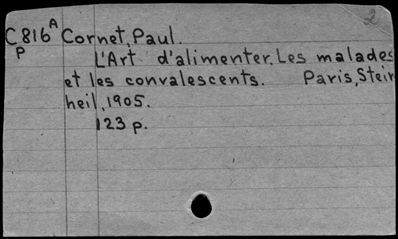 2
C816A Cornet, Paul.
P L'Art d'alimenter. Les malades
et les convalescents. Paris, Stein
heil, 1905.
123 p.